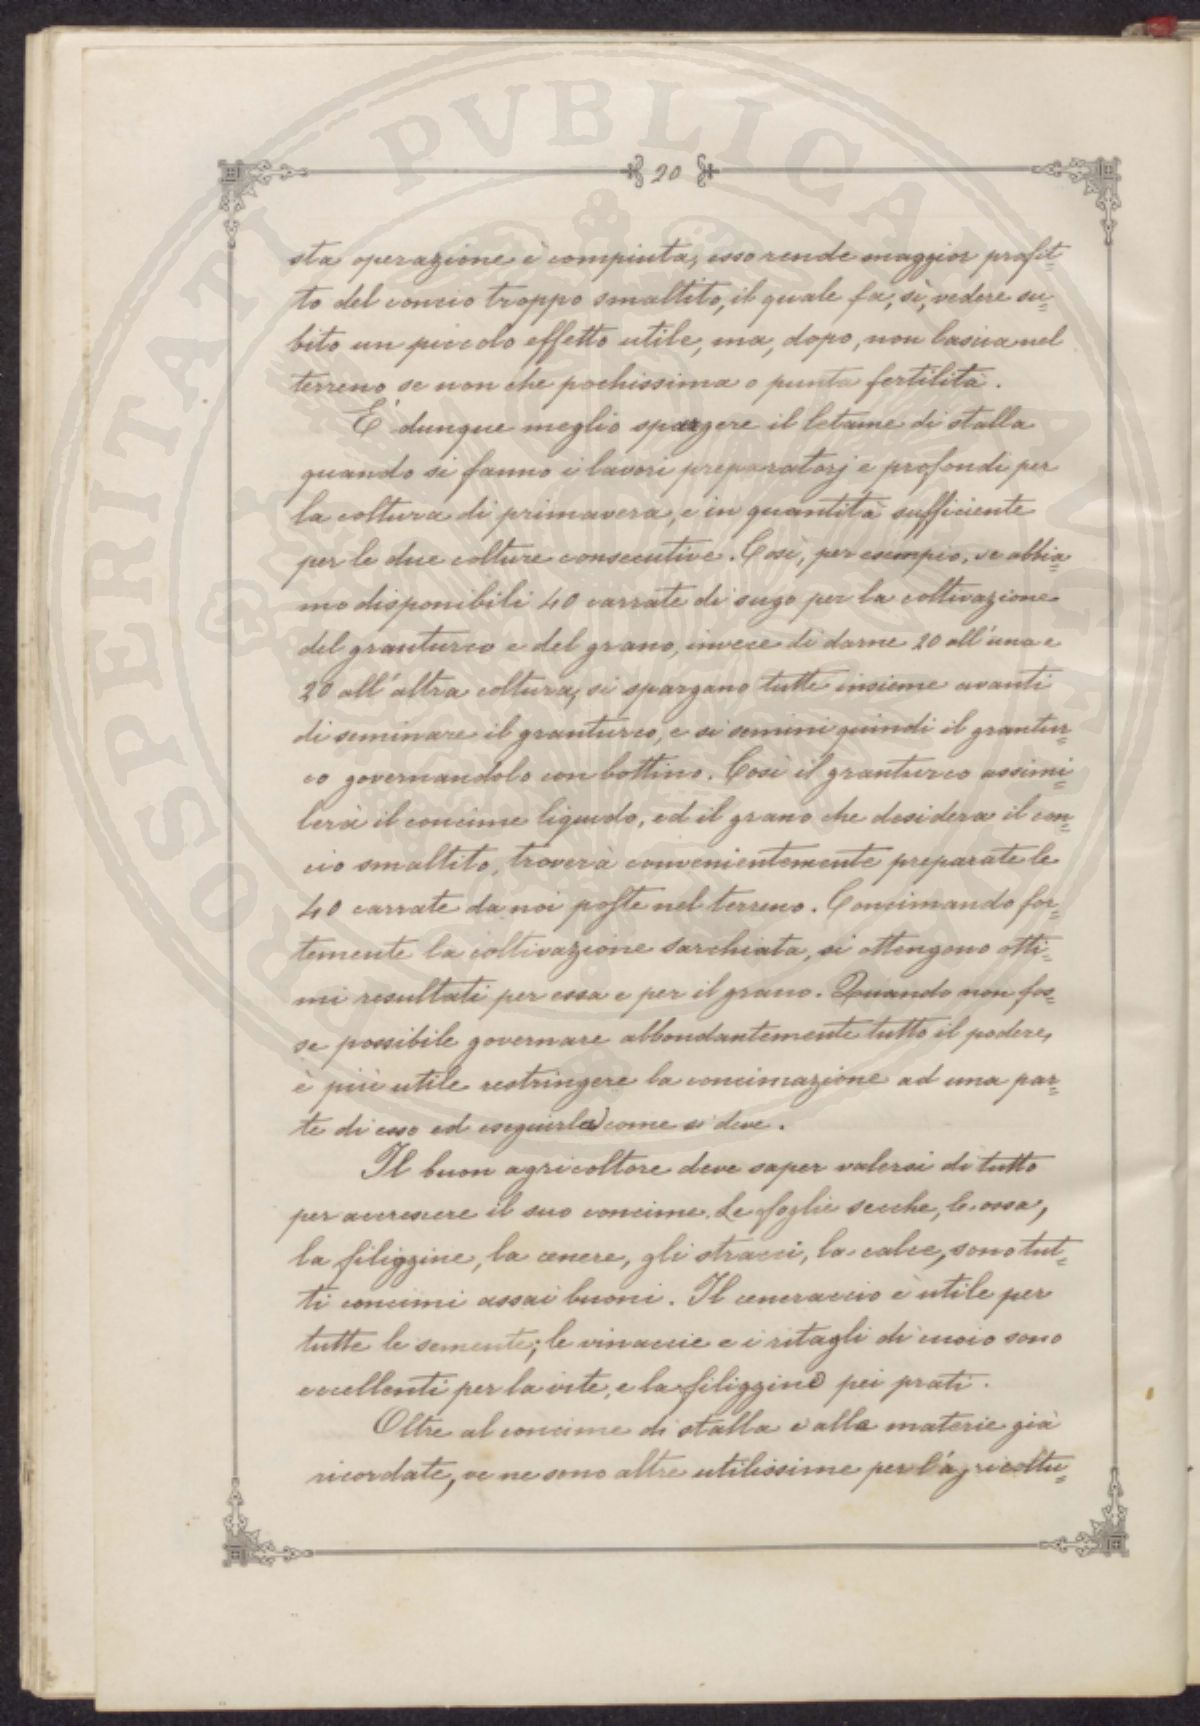 20
sta operazione è compiuta, esso rende maggior profit=
to del concio troppo smaltito, il quale fa, sì, vedere su=
bito un piccolo effetto utile, ma, dopo, non lascia nel
terreno se non che pochissima o punta fertilità.
E' dunque meglio spargere il letame di stalla
quando si fanno i lavori preparatorj e profondi per
la coltura di primavera, e in quantità sufficiente
per le due colture consecutive. Così, per esempio, se abbia=
mo disponibili 40 carrate di sugo per la coltivazione
del granturco e del grano, invece di darne 20 all'una e
20 all'altra coltura, si spargano tutte insieme avanti
di seminare il granturco, e si semini quindi il grantur=
co governandolo con bottino. Così il granturco assimi=
lerà il concime liquido, ed il grano che desidera il con=
cio smaltito, troverà convenientemente preparate le
40 carrate da noi poste nel terreno. Concimando for=
temente la coltivazione sarchiata, si ottengono otti=
mi resultati per essa e per il grano. Quando non fos=
se possibile governare abbondantemente tutto il podere,
è più utile restringere la concimazione ad una par=
te di esso ed eseguirla come si deve.
Il buon agricoltore deve saper valersi di tutto
per accrescere il suo concime. Le foglie secche, le ossa,
la filiggine, la cenere, gli stracci, la calce, sono tut=
ti concimi assai buoni. Il ceneraccio è utile per
tutte le semente; le vinaccie e i ritagli di cuoio sono
eccellenti per la vite, e la filiggine pei prati.
Oltre al concime di stalla e alle materie già
ricordate, ve ne sono altre utilissime per l'agricoltu=
PROSPERITATI PVBLICAE AVGENDAE